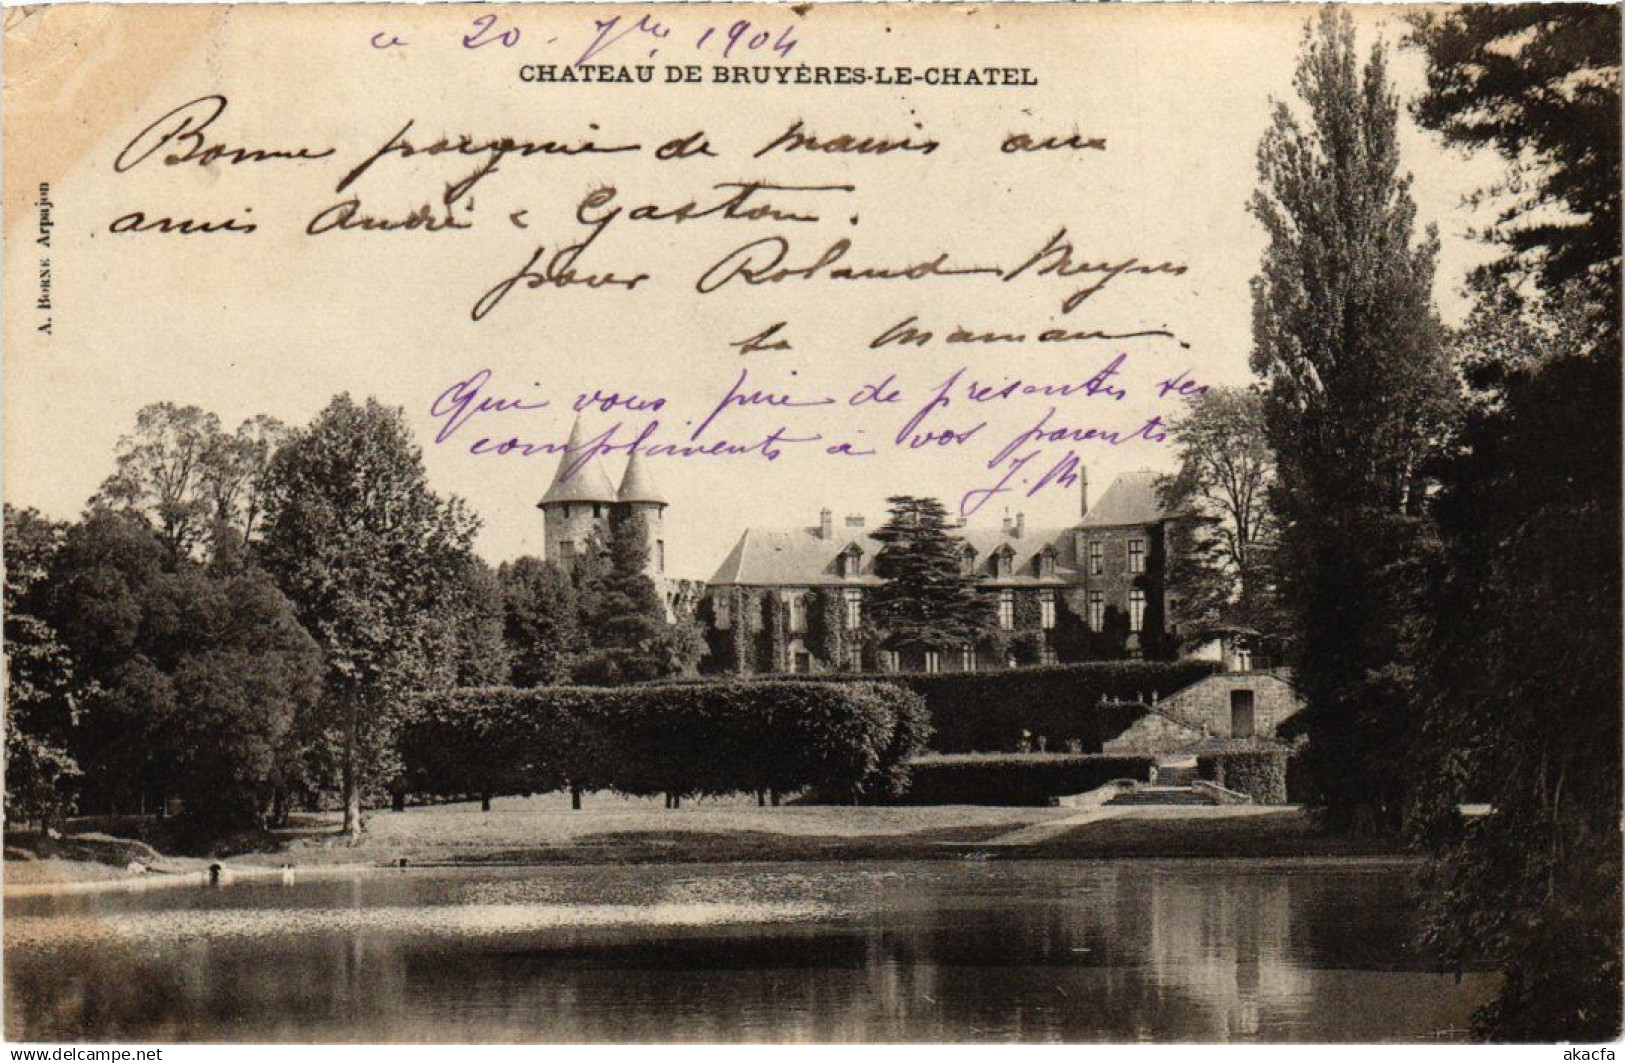 ce 20 - 7bre 1904
CHATEAU DE BRUYÈRES-LE-CHATEL
A. BORNE Arpajon
Bonne poignée de mains aux
amis André & Gaston.
pour Roland
sa maman.
Qui vous prie de présenter ses
compliments à vos parents
J. M
akacfa
www.delcampe.net